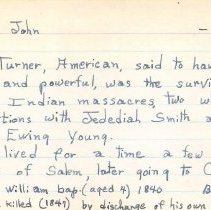 John -
Turner, American, said to hav
and powerful, was the survi
Indian massacres, two w
tions with Jedediah Smith a
Ewing Young.
lived for a time a few
of Salem, later going to C
William bap. (aged 4) 1840 B
killed (1847) by discharge of his own